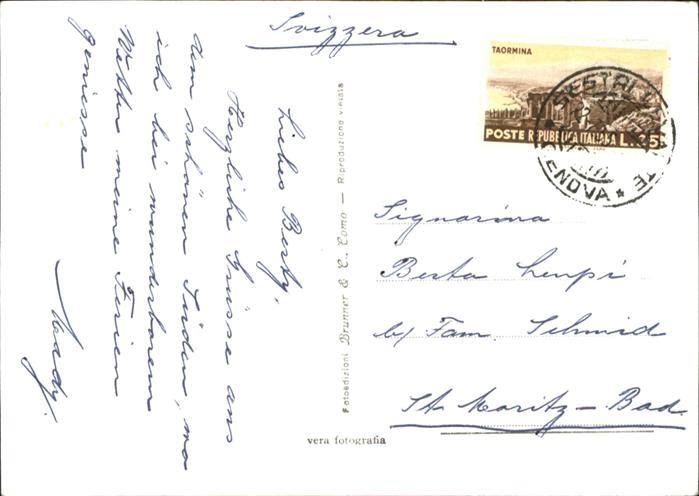 Svizzera
TAORMINA
POSTE REPUBBLICA ITALIANA L.35
SESTRI LEVANTE
GENOVA
Liebes Berty,
Herzliche Grüsse aus
dem schönen Süden, wo
ich bei wunderbarem
Wetter meine Ferien
geniesse
Hedy.
Fotoedizioni Brunner & C. Como — Riproduzione vietata
Signorina
Berta Lempi
b/ Fam. Schmid
St. Moritz - Bad.
vera fotografia